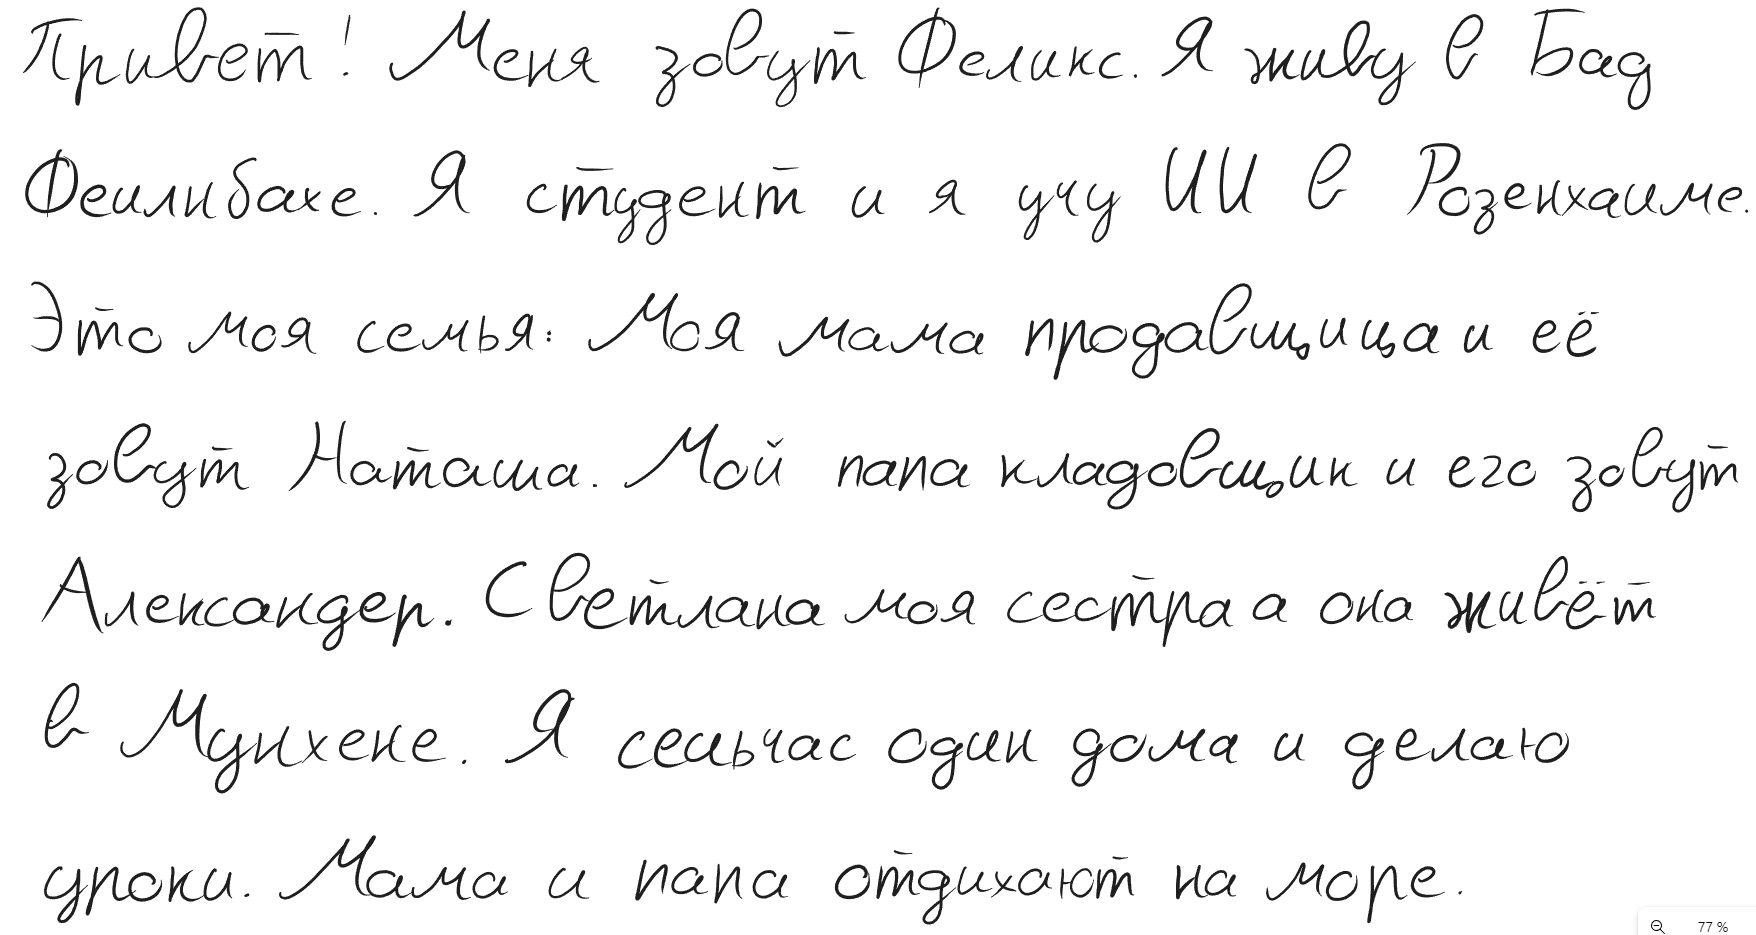 Привет! Меня зовут Феликс. Я живу в Бад
Феилнбахе. Я студент и я учу ИИ в Розенхаиме.
Это моя семья: Моя мама продавщица и её
зовут Наташа. Мой папа кладовщик и его зовут
Александер. Светлана моя сестра а она живёт
в Мунхене. Я сеиьчас один дома и делаю
уроки. Мама и папа отдихают на море.
77 %